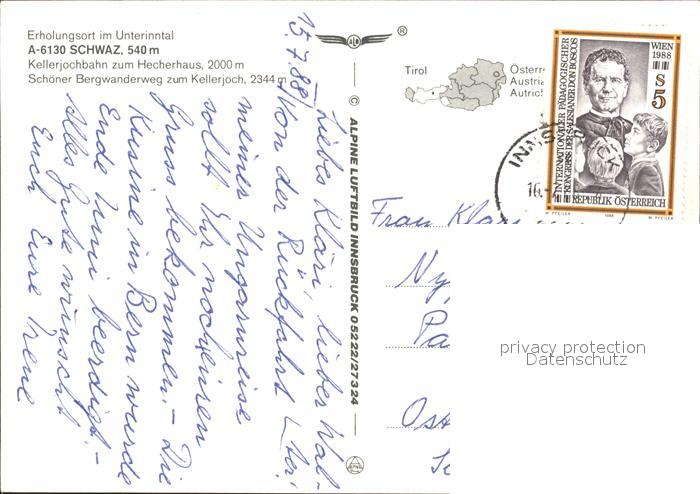 Erholungsort im Unterinntal
A-6130 SCHWAZ, 540 m
Kellerjochbahn zum Hecherhaus, 2000 m
Schöner Bergwanderweg zum Kellerjoch, 2344 m
®
Tirol
Österr
Austria
Autric
WIEN
1988
S
5
INTERNATIONALER PÄDAGOGISCHER
KONGRESS DER SALESIANER DON BOSCOS
REPUBLIK ÖSTERREICH
W. PFEILER
1988
W. PFEILER
INNS
16.
© ALPINE LUFTBILD INNSBRUCK 05222/27324
15.7.88/
Liebes Klari, lieber Wal-
Von der Rückfahrt
meines Ungarnreise
sollt Ihr noch einen
Gruss bekommen. - Die
Kusine in Bern wurde
Ende Juni beerdigt. -
Alles Gute wünscht
Euch Eure Irene
Frau Klari
Ny
Pa
Ost
privacy protection
Datenschutz